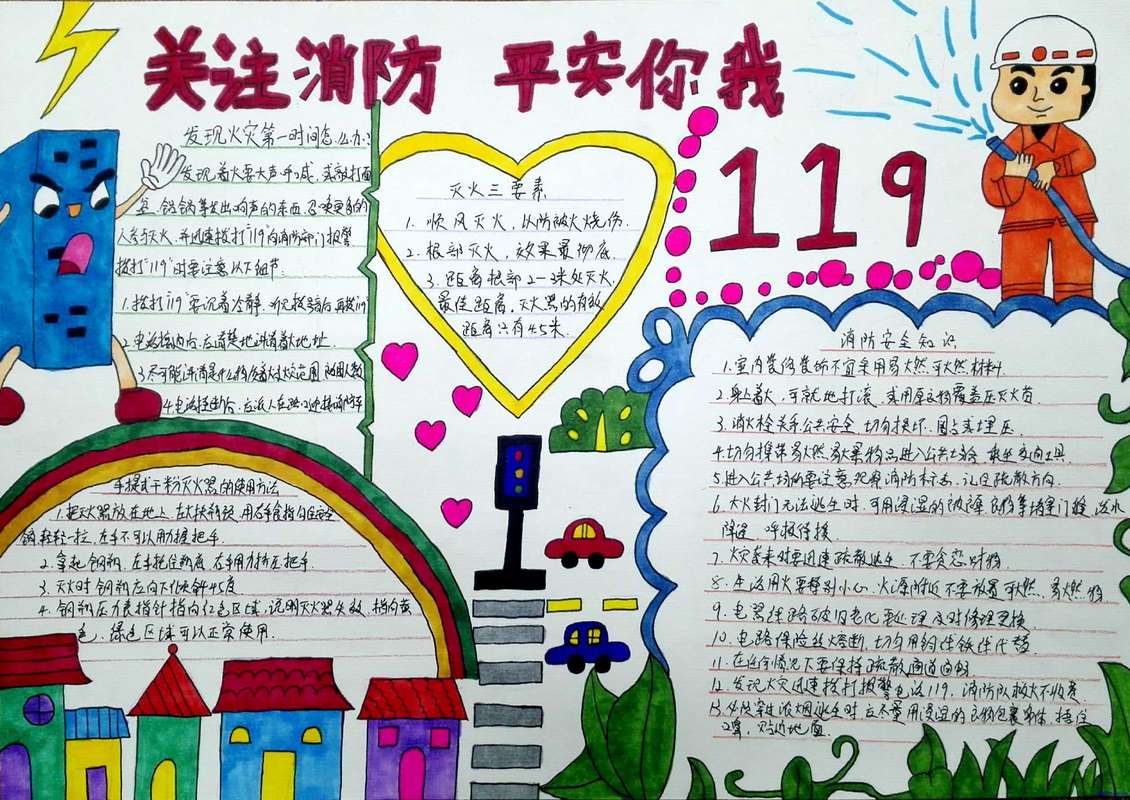 关注消防 平安你我
119
发现火灾第一时间怎么办?
发现着火要大声呼喊，或敲打面
盆、锅锅等发出响声的东西，召唤更多的
人参与灭火，并迅速拨打“119”向消防部门报警
拨打“119”时要注意以下细节
1.拨打“119”要沉着冷静
3.尽可能讲清是什么物
灭火三要素
1. 顺风灭火，以防被火烧伤.
2. 根部灭火，效果最彻底.
3. 距离根部2-3米处灭火，
最佳距离，灭火器的有效
距离只有4.5米.
手提式干粉灭火器的使用方法
1.把灭火器放在地上
销轻轻一拉，左手不可以用力握把手.
2. 拿起钢瓶，左手托住瓶底 右手用力挤压把手.
3. 灭火时钢瓶应向下倾斜45度
4. 钢瓶压力表指针指向红色区域，说明灭火器失效，指向黄
色、绿色区域可以正常使用.
消防安全知识
1.室内装修装饰不宜采用易燃、可燃材料.
2.身上着火，可就地打滚，或用厚衣物覆盖压灭火苗
3.消火栓关乎公共安全 切勿损坏、圈占或埋压
4.切勿携带易燃易爆物品进入公共场会 乘坐交通工具.
5.进入公共场所要注意观察消防标志，记住疏散方向.
6.大火封门无法逃生时，可用浸湿的被褥 衣物等堵塞门缝，泼水
降温 呼救待援
7.火灾袭来时要迅速疏散逃生 不要贪恋财物
8.生活用火要特别小心，火源附近不要放置可燃、易燃物
9.电器线路破旧老化要处理及时修理更换
10.电路保险丝熔断，切勿用铜线铁线代替
11.在任何情况下要保持疏散通道通畅
12.发现火灾迅速拨打报警电话119，消防队救火不收费
必须穿过浓烟逃生时 应尽量用浸湿的衣物包裹身体，捂住
口鼻，贴近地面